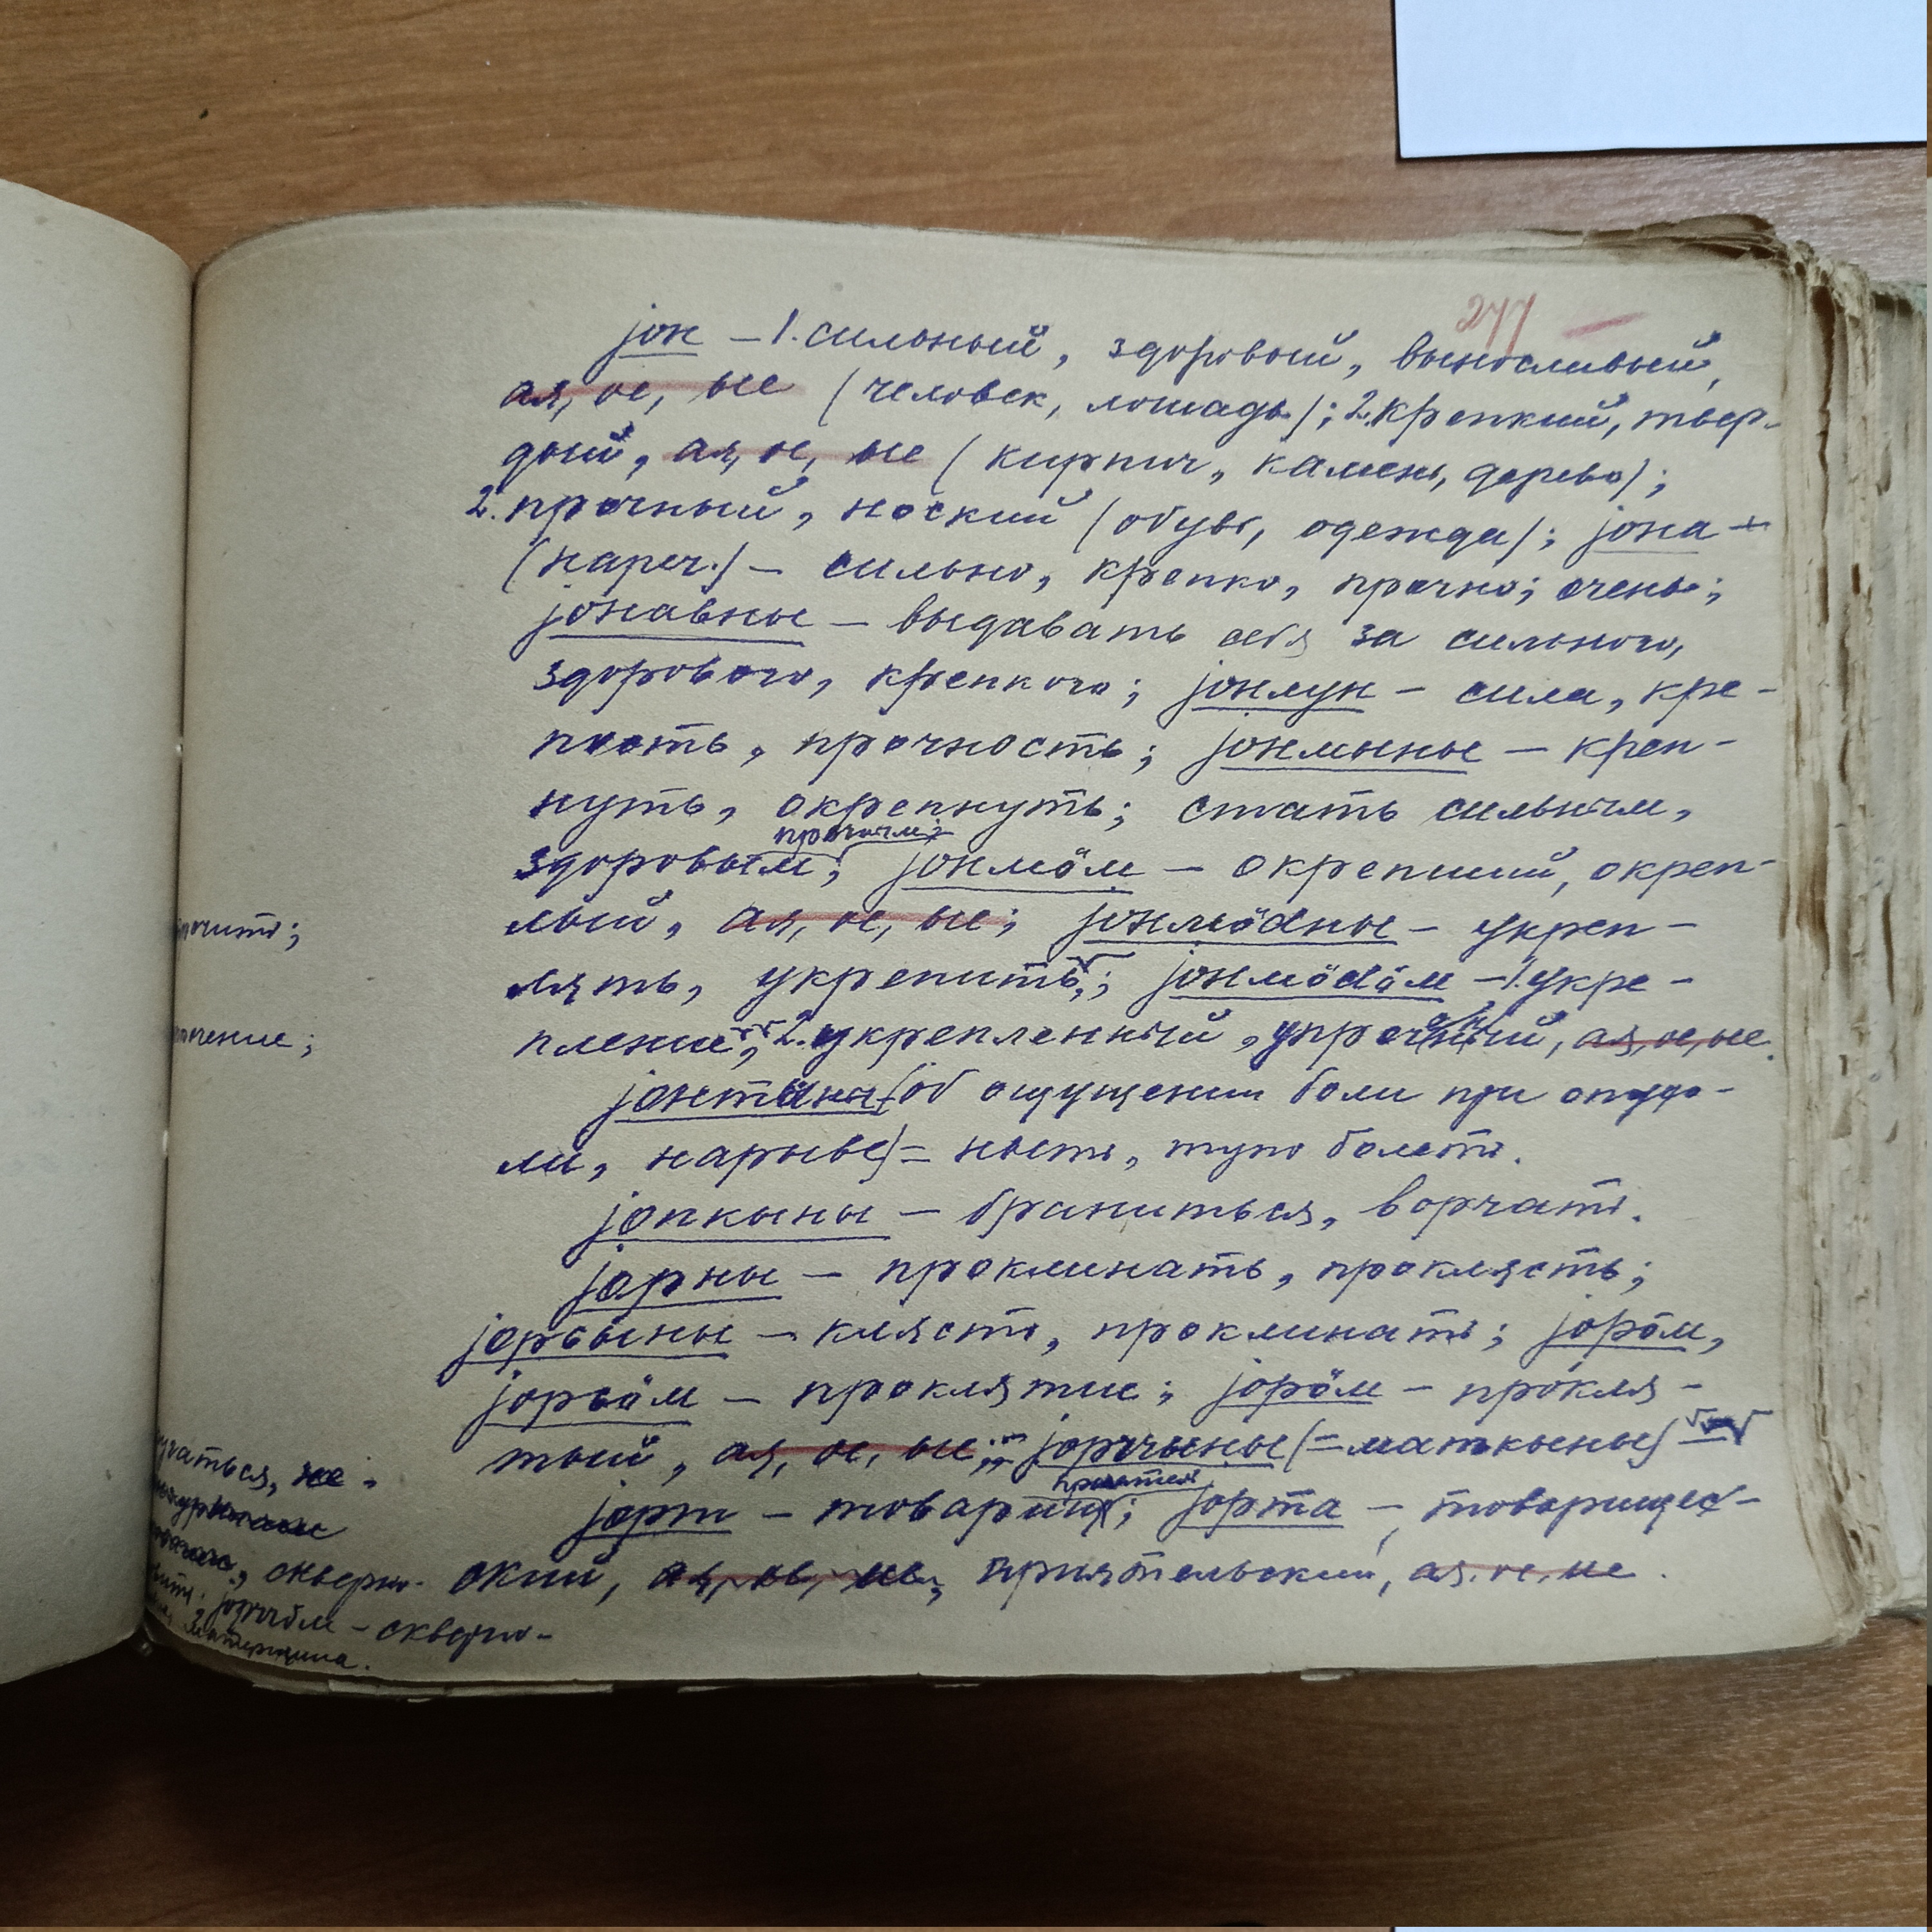 277
јон – 1. сильный, здоровый, выносливый,
ая, ое, ые (человек, лошадь); 2. крепкий, твер-
дый, ая, ое, ые (кирпич, камень, дерево);
2. прочный, ноский (обувь, одежда); јона –
(нареч.) – сильно, крепко, прочно; очень;
јонавны – выдавать себя за сильного,
здорового, крепкого; јонлун – сила, кре-
пость, прочность; јонмыны – креп-
нуть, окрепнуть; стать сильным,
прочным;
здоровым; јонмӧм – окрепший, окреп-
лый, ая, ое, ые; јонмӧdны – укреп-
лять, укрепить; јонмӧdӧм – 1. укре-
пление, 2. укрепленный, ая, ое, ые.
(об ощущении боли при опухо-
ли, нарыве) – ныть, тупо болеть.
јопкыны – браниться, ворчать.
јорны – проклинать, проклясть;
јорсыны – клясть, проклинать; јорӧм,
јорсӧм – проклятие; јорӧм – прокля-
тый, ая, ое, ые; јорччыны (= маткыны)
приятель
јорт – товарищ; јорта – товарищес-
ский, ая, ое, ые, приятельский, ая, ое, ые.
прочить;
прочение;
скверно-
– скверно-
матерщина.